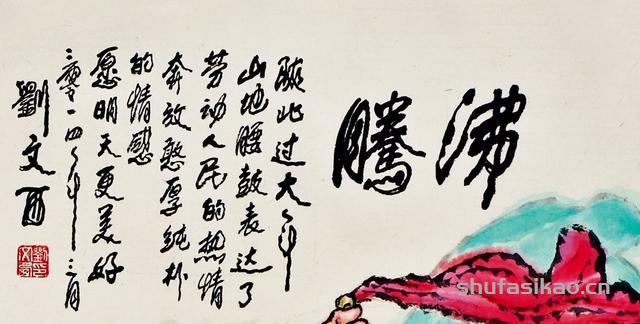 沸騰
陕北过大年
山地腰鼓表达了
劳动人民的热情
奔放憨厚纯朴
的情感
愿明天更美好
二零一四年三月
劉文西
shufasikao.cn